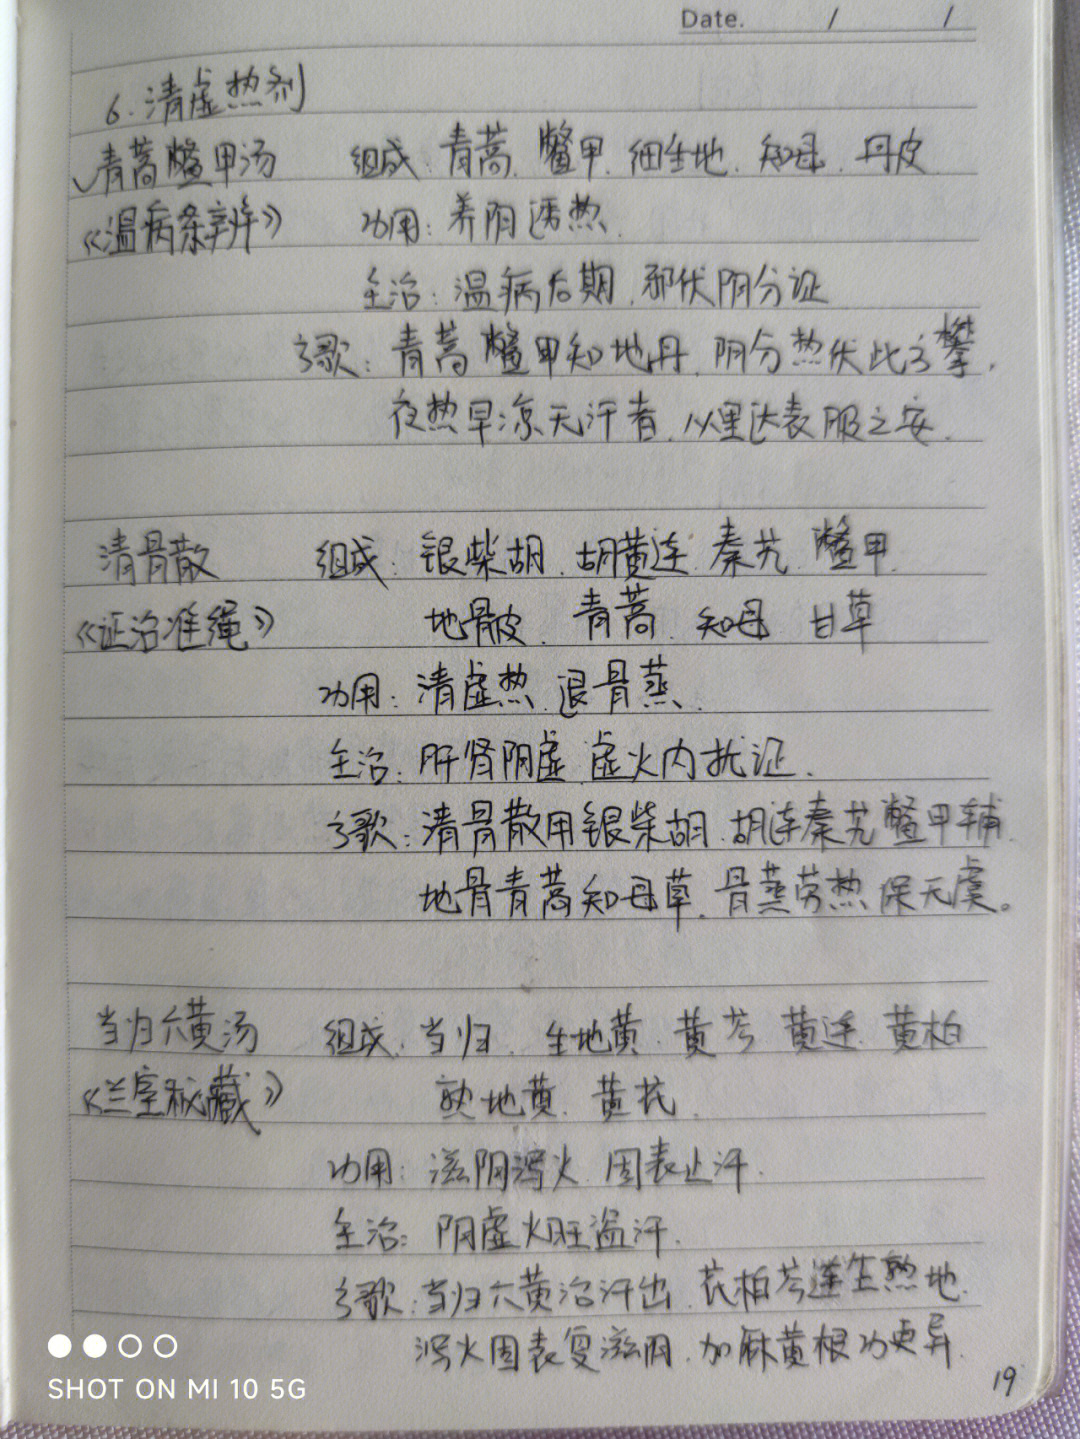 Date. / /
6. 清虚热剂
✓青蒿鳖甲汤 组成: 青蒿. 鳖甲. 细生地. 知母. 丹皮
《温病条辨》 功用: 养阴透热.
主治: 温病后期, 邪伏阴分证
方歌: 青蒿鳖甲知地丹, 阴分热伏此方攀,
夜热早凉无汗者, 从里达表服之安.
清骨散 组成: 银柴胡. 胡黄连. 秦艽. 鳖甲
《证治准绳》 地骨皮. 青蒿. 知母 甘草
功用: 清虚热 退骨蒸.
主治: 肝肾阴虚 虚火内扰证.
方歌: 清骨散用银柴胡. 胡连秦艽鳖甲辅.
地骨青蒿知母草, 骨蒸劳热保无虞。
当归六黄汤 组成: 当归. 生地黄. 黄芩 黄连 黄柏
《兰室秘藏》 熟地黄. 黄芪.
功用: 滋阴泻火 固表止汗.
主治: 阴虚火旺盗汗.
方歌: 当归六黄治汗出, 芪柏芩莲生熟地.
泻火固表复滋阴, 加麻黄根功更异.
19
SHOT ON MI 10 5G